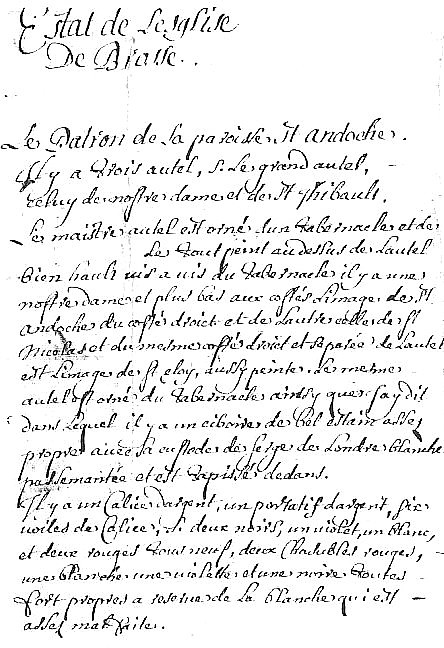 Estat de Lesglise
De Brasse..
Le Patron de la paroisse st andoche.
Il y a trois autel, s. Le grand autel,
celuy de nostre dame et de st thibault.
Le maistre autel est orné d'un tabernacle et de
Le tout peint au dessus de Lautel
bien hault vis a vis du tabernacle il y a une
nostre dame et plus bas aux costés Limage de st
andoche du costé droict et de Lautre celle de st
Nicolas et du mesme costé droict et separée de Lautel
est Limage de st eloy, aussy peinte. Le mesme
autel est orné du tabernacle ainsy que j'ay dit
dans Lequel il y a un ciboire de bel estain asses
propre avec sa custode de serge de Londre blanche
passementée et est tapissé dedans.
Il y a un Calice d'argent, un portatif d'argent, six
voiles de Calice, s. deux noirs, un violet, un blanc,
et deux rouges tous neuf, deux Chasubles rouges,
une blanche une violette et une noire toutes
fort propres a reserve de La blanche qui est
asses mal faite.